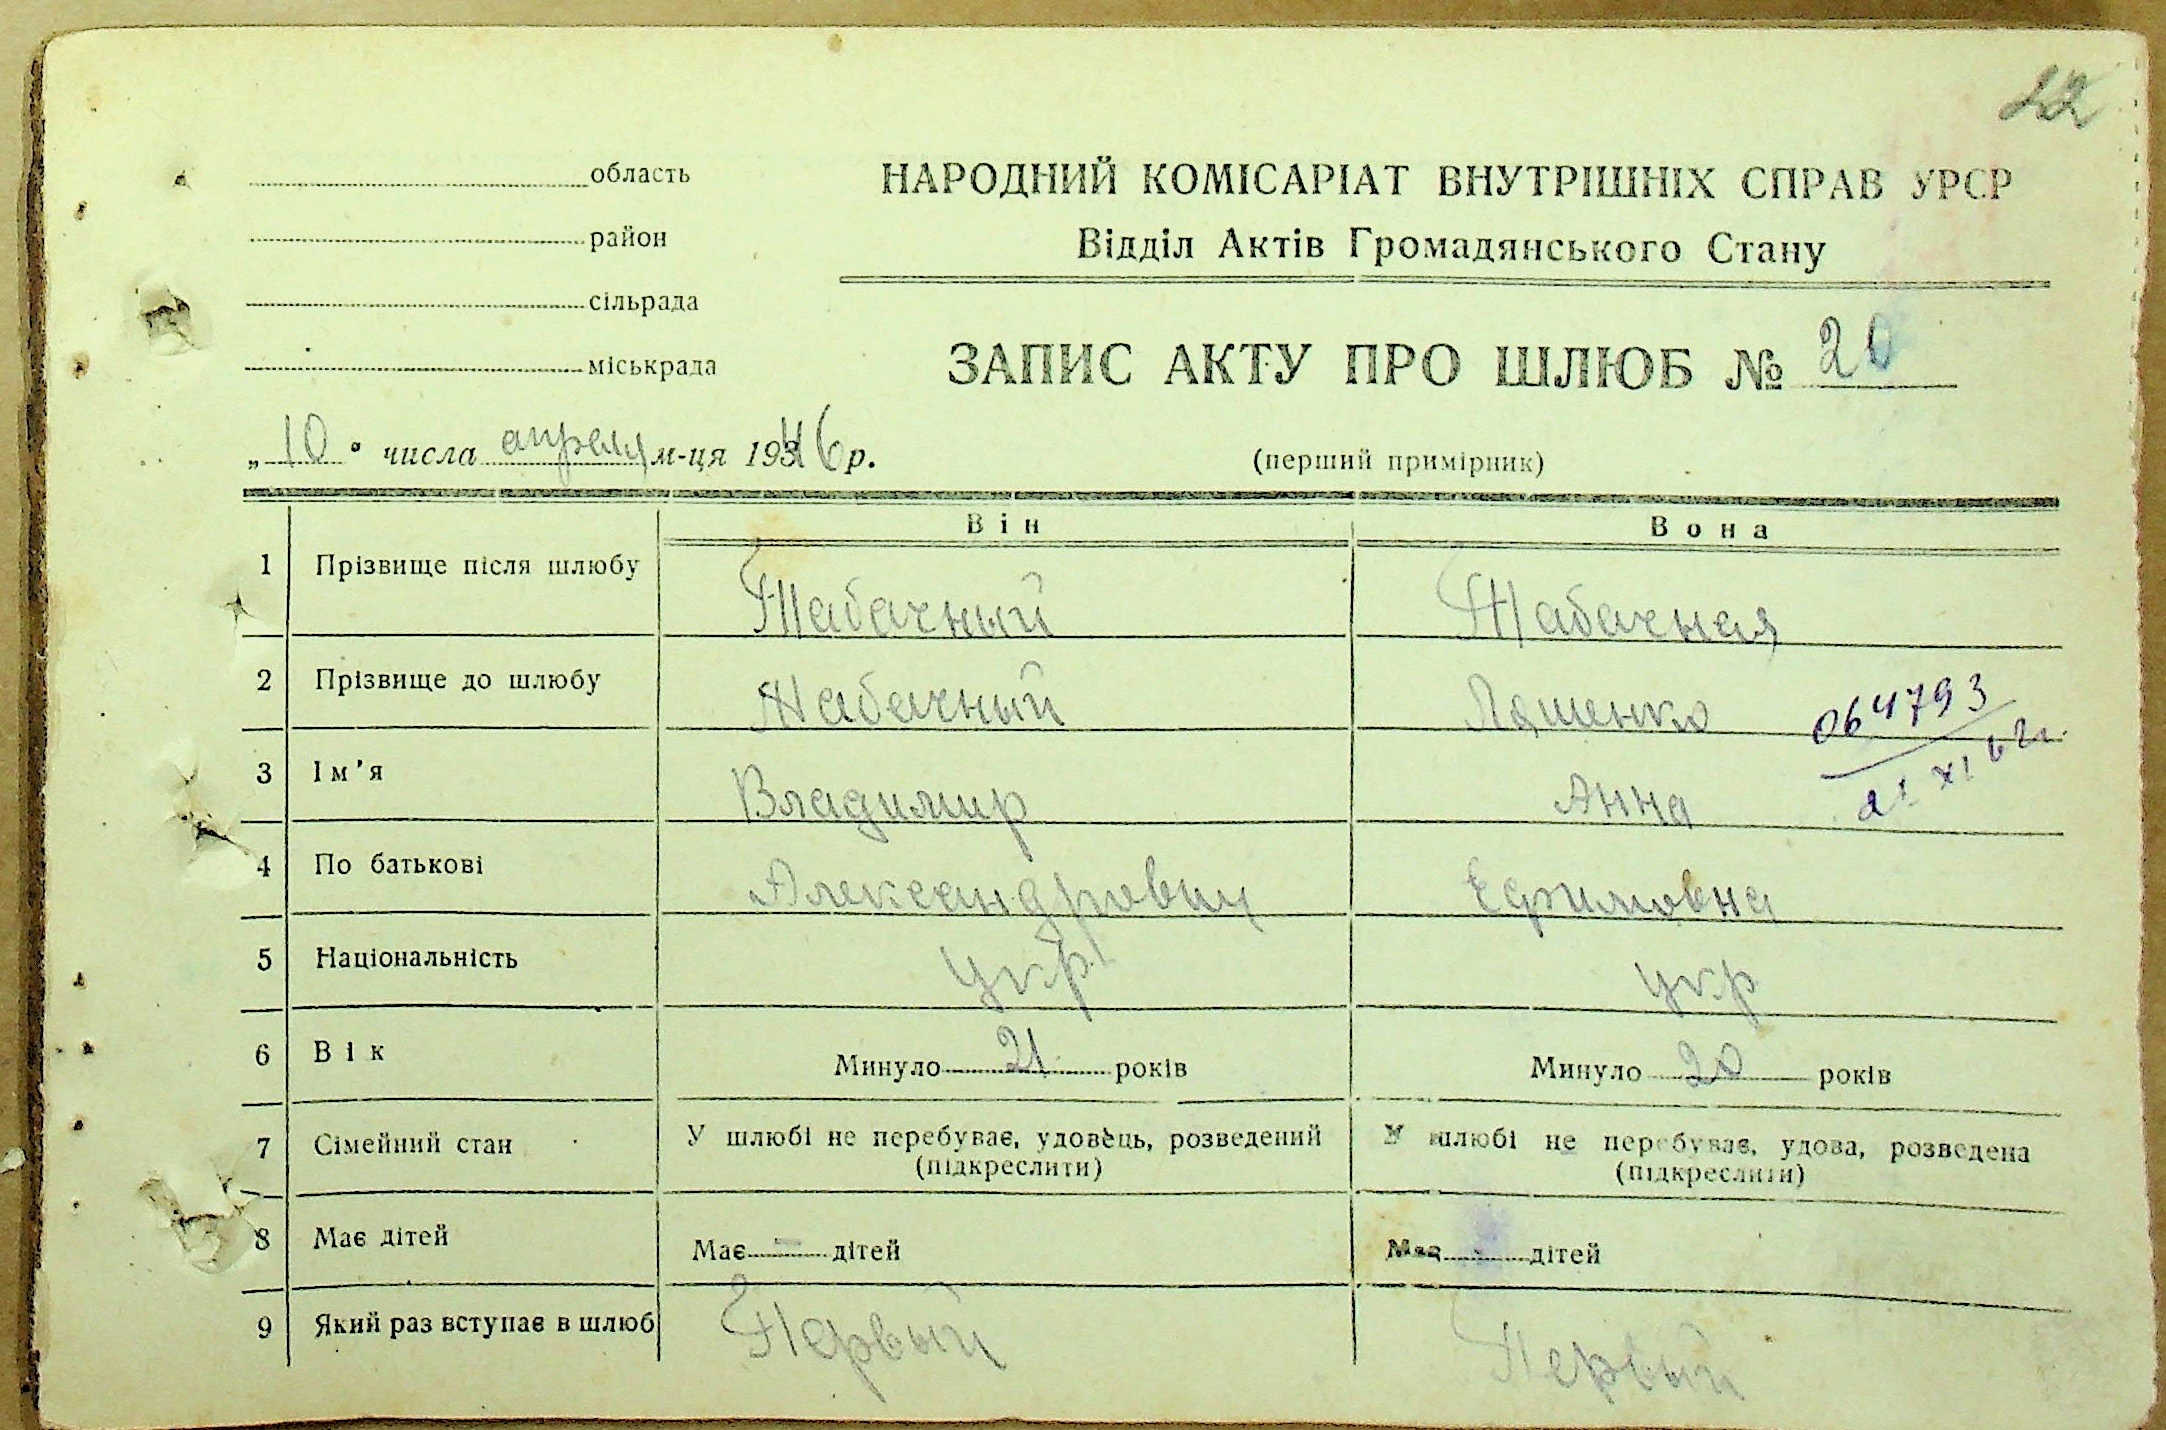 22
область
район
сільрада
міськрада
НАРОДНИЙ КОМІСАРІАТ ВНУТРІШНІХ СПРАВ УРСР
Відділ Актів Громадянського Стану
ЗАПИС АКТУ ПРО ШЛЮБ № 20
„10“ числа апреля м-ця 1946 р.
(перший примірник)
Він Вона
1 Прізвище після шлюбу Табачный Табачная
2 Прізвище до шлюбу Табачный Ляшенко
064793
21 XI 62г.
3 Ім'я Владимир Анна
4 По батькові Александрович Ефимовна
5 Національність укр укр
6 Вік Минуло 21 років Минуло 20 років
7 Сімейний стан У шлюбі не перебуває, удовець, розведений У шлюбі не перебуває, удова, розведена
(підкреслити) (підкреслити)
8 Має дітей Має – дітей Має - дітей
9 Який раз вступає в шлюб Первый Первый